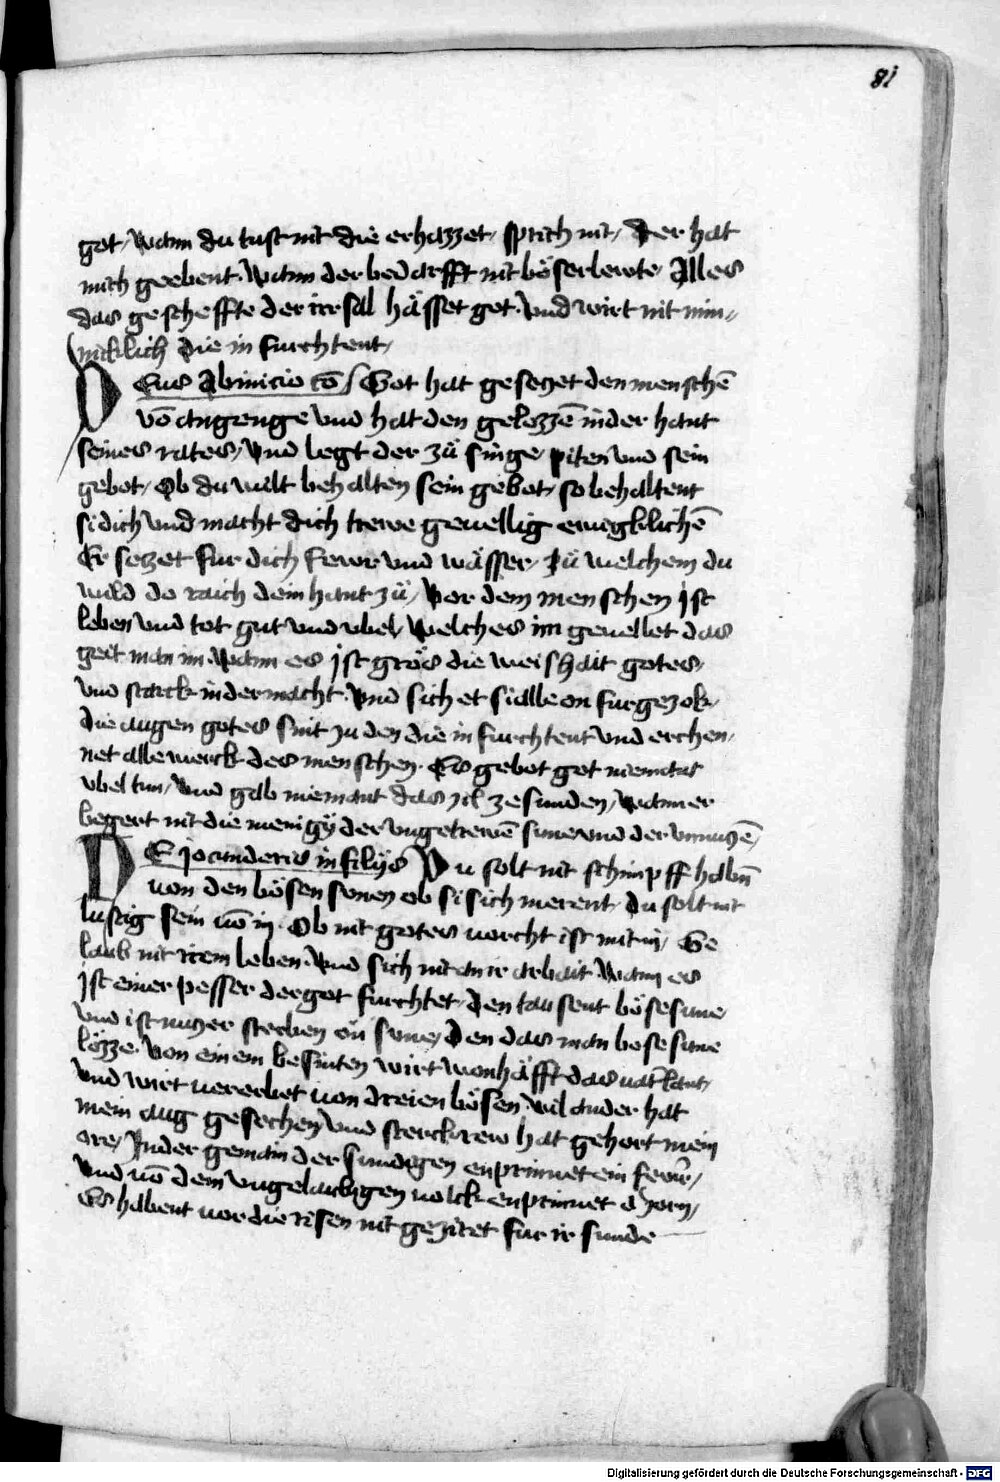 81
got / wann du tust nit die er hazzet / sprich nit / der hat
mich geebent. Wann der bedarfft nit böser lewte / Alles
das gescheffte der irrsal hässet got. Vnd wirt nit min⸗
nicklich die in furchtent /
DEus Abinicio cō / Got hat geseczet den menschē
vō angenge vnd hat den gelozzē in der hant
seines rates / vnd legt der zü singe piten vnd sein
gebot / Ob du wilt behalten sein gebot / so behaltent
si dich vnd macht dich trewe geuellig ewigklichē
Er seczet fur dich fewr vnd wässer / zü welchem du
wild do raich dein hant zü / Vor dem menschen ist
leben vnd tot gut vnd vbel / welches im geuellet das
geit man im. Wann es ist grös die weishait gotes /
vnd starck in der macht. vnd sichet si alle on furgezok /
die augen gotes sint zu den die in furchtent vnd erchen⸗
net alle werck des menschen. Es gebot got niemant
vbel tun / vnd gab niemant das zil ze sunden / wann er
begert nit die menigy der vngetrewē sune vnd der vnnuczē /
DE jocunderis in filijs Du solt nit schimpff habn̄
von den bösen sonen ob si sich merent / du solt nit
lustig sein vō in. Ob nit gotes vorcht ist mit in / Ge
laub nit irem leben. vnd sich nit an ir arbait wann es
ist einer pesser der got furchtet / den tausent böse sune /
vnd ist nuczer sterben on sune / den das man bose sune
lözze. Von einem besinten wirt wonhäfft das vat̄lant /
vnd wirt vererbet von dreien bösen. vil ander hat
mein aug gesechen vnd sterckrew hat gehort mein
ore / In der gemain der sundigen enprinnet ein fewr̄ /
vnd vō dem vngelaubigen volck enprinnet d zorn /
Es habent vor die risen nit gezitet fur ir sunde
Digitalisierung gefördert durch die Deutsche Forschungsgemeinschaft - DFG